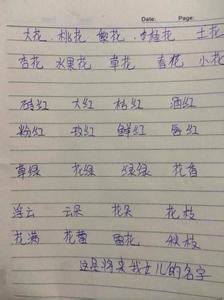 Date: Page:
大花 桃花 梨花 桂花 土花
杏花 水果花 草花 春花 小花
砖红 大红 桃红 酒红
粉红 玫红 鲜红 唇红
草绿 花绿 绿绿 花香
浮云 云朵 花朵 花枝
花满 花蕾 雨花 秋枝
这是将来我女儿的名字